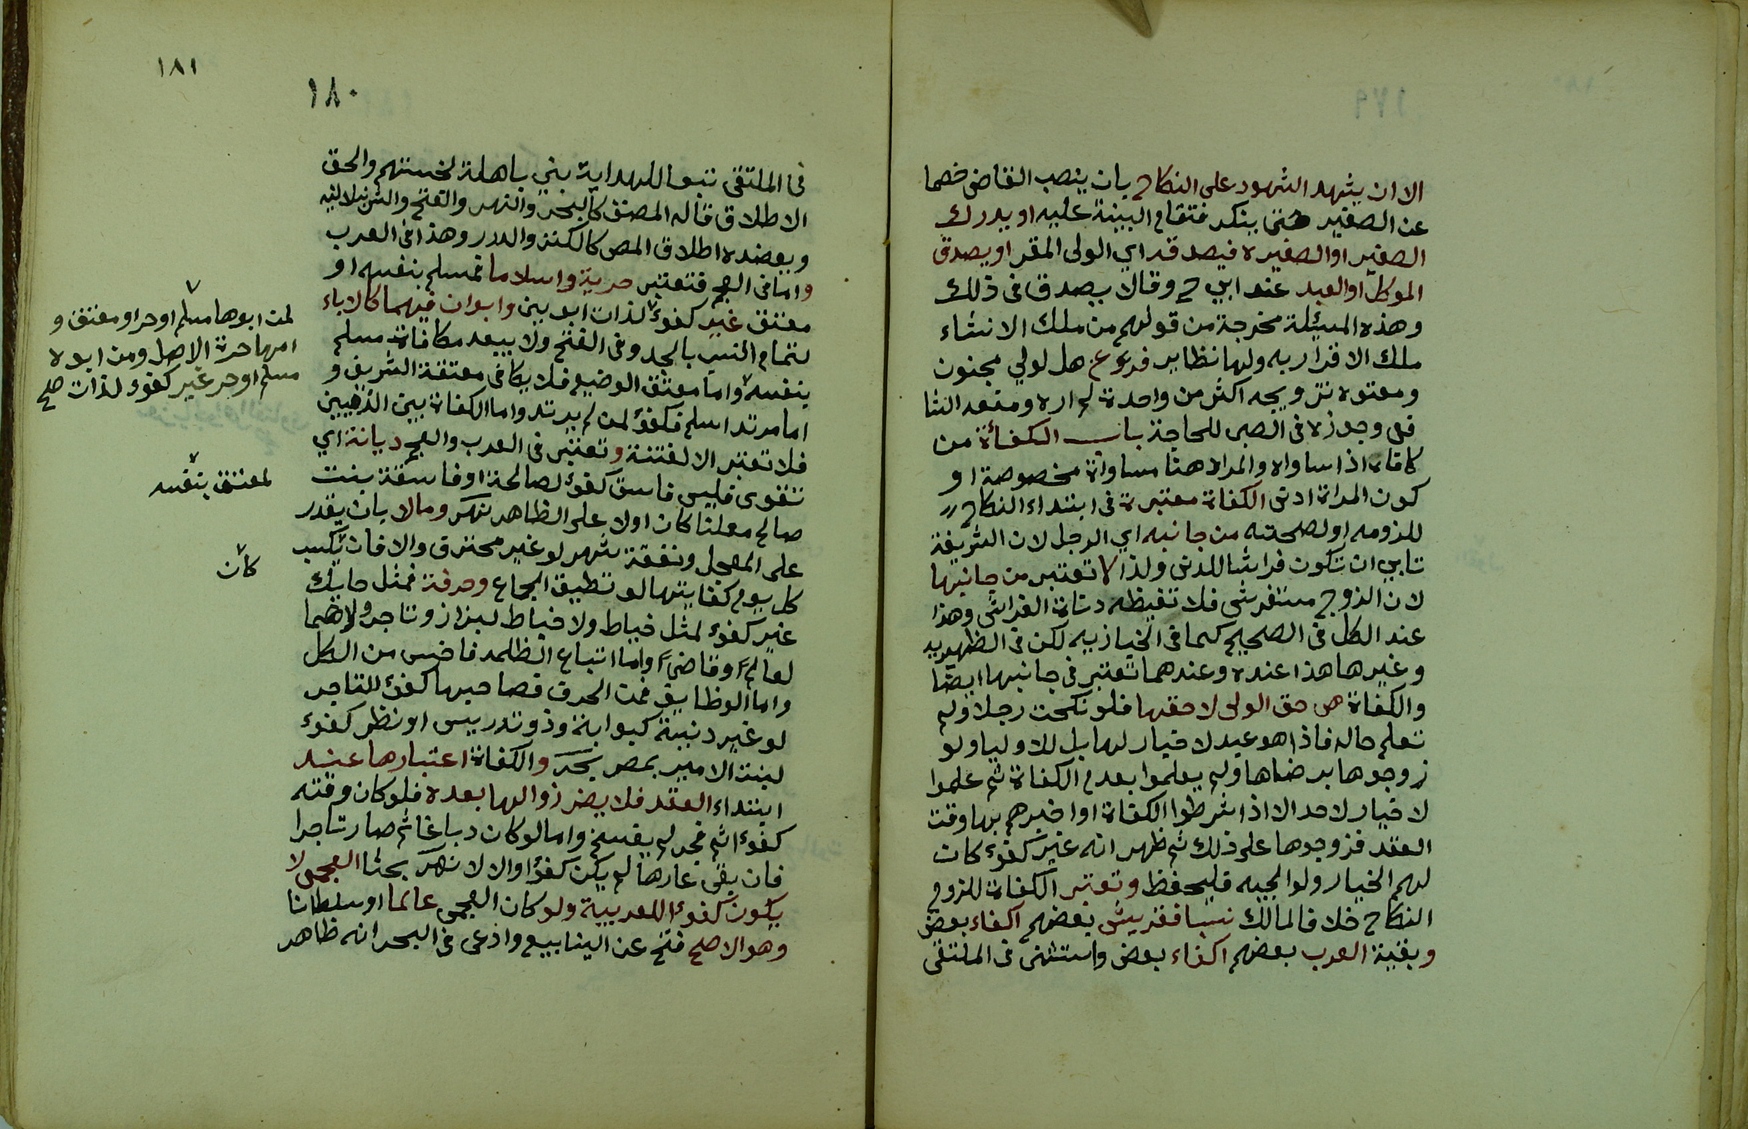 الا ان يشهد الشهود على النكاح بان ينصب القاضى خصما
عن الصغير حتى ينكر فتقام البينة عليه او يدرك
الصغير او الصغيرة فيصدقه اي الولى المقر او يصدق
الموكل او العبد عند ابي ح وقالا يصدق فى ذلك
وهذه المسئلة مخرجة من قولهم من ملك الانشاء
ملك الاقرار به ولها نظاير فروع هل لولي مجنون
ومعتوه تزويجه اكثر من واحدة لم اره ومنعه الشا
فعى وجوزه فى الصبى للحاجة باب الكفأة من
كافاه اذا ساواه والمراد هنا مساواة مخصوصة او
كون المراة ادنى الكفاة معتبرة فى ابتداء النكاح
للزومه او لصحته من جانبه اي الرجل لان الشريفة
تابى ان تكون فراشا للدنى ولذا لا تعتبر من جانبها
لان الزوج مستفرش فلا تغيظه دناة الفراش وهذا
عند الكل فى الصحيح كما فى الخبازيه لكن فى الظهيريه
وغيرها هذا عنده وعندهما تعتبر فى جانبها ايضا
والكفاة هى حق الولى لا حقها فلو نكحت رجلا ولم
تعلم حاله فاذا هو عبد لا خيار لها بل للاوليا ولو
زوجوها برضاها ولم يعلموا بعدم الكفاة ثم علموا
لا خيار لاحد الا اذا شرطوا الكفاة او اخبرهم بها وقت
العقد فزوجوها على ذلك ثم ظهر انه غير كفوء كان
لهم الخيار ولوالجيه فليحفظ وتعتبر الكفاة للزوم
النكاح خلافا لمالك نسبا فقريش بعضهم اكفاء بعض
وبقية العرب بعضهم اكفاء بعض واستثنى فى الملتقى
١٨١
١٨٠
فى الملتقى تبعا للهداية بني باهلة لخستهم والحق
الاطلاق قاله المصنف كالبحر والنهر والفتح والشرنبلالية
ويعضده اطلاق المص كالكنز والدرر وهذا فى العرب
واما فى العجم فتعتبر حرية واسلاما فمسلم بنفسه او
معتق غير كفوء لذات ابوين وابوان فيهما كالاباء
لتمام النسب بالجد وفى الفتح ولا يبعد مكافاة مسلم
بنفسه واما معتق الوضيع فلا يكافى معتقة الشريف و
اما مرتد اسلم فكفؤ لمن لم يرتد واما الكفاة بين الذميين
فلا تعتبر الا لفتنة وتعتبر فى العرب والعجم ديانة اي
تقوى فليس فاسق كفؤ لصالحة او فاسقة بنت
صالح معلنا كان او لا على الظاهر نهر ومالا بان يقدر
على المعجل ونفقة شهر لو غير محترق والا فان يكتسب
كل يوم كفايتها لو تطيق الجماع وحرفة فمثل حايك
غير كفوء لمثل خياط ولا خياط لبزاز وتاجر ولا هما
لعالم او قاض واما اتباع الظلمة فاخس من الكل
واما الوظايف فمن الحرف فصاحبها كفؤ للتاجر
لو غير دنيئة كبوابة وذو تدريس او نظر كفوء
لبنت الامير بمصر بحر والكفاة اعتبارها عند
ابتداء العقد فلا يضر زوالها بعده فلو كان وقته
كفؤا ثم فجر لم يفسخ واما لو كان دباغا ثم صار تاجرا
فان بقى عارها لم يكن كفؤا والا لا نهر بحثا العجمى لا
يكون كفوءا للعربية ولو كان العجمى عالما او سلطانا
وهو الاصح فتح عن الينابيع وادعى فى البحر انه ظاهر
لمن ابوها مسلم او حر او معتق و
امها حرة الاصل ومن ابوه
مسلم او حر غير كفوء لذات صح
لمعتق بنفسه
كان